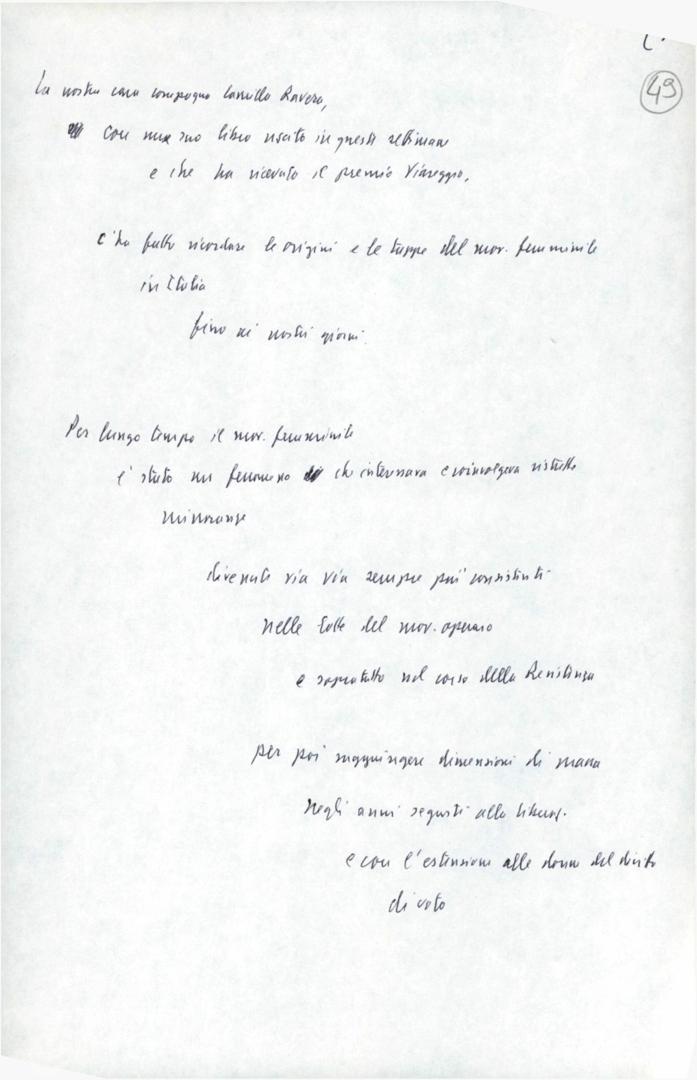 49
La nostra cara compagna Camilla Ravera,
con suo libro uscito in queste settimane
e che ha ricevuto il premio Viareggio,
c'ha fatto ricordare le origini e le tappe del mov. femminile
in Italia
fino ai nostri giorni.
Per lungo tempo il mov. femminile
è stato un fenomeno che interessava e coinvolgeva ristrette
minoranze
divenute via via sempre più consistenti
nelle lotte del mov. operaio
e soprattutto nel corso della Resistenza
per poi raggiungere dimensioni di massa
negli anni seguiti alla liberaz.
e con l'estensione alle donne del diritto
di voto